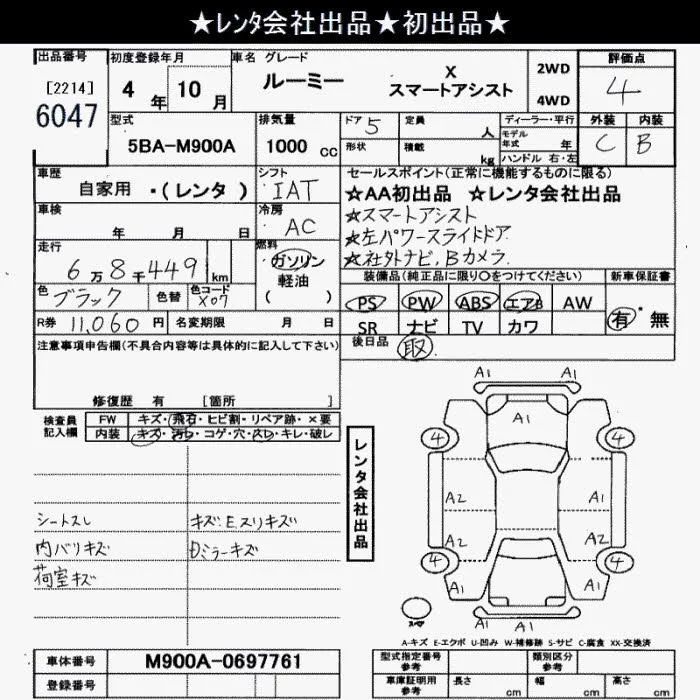 ★レンタ会社出品★初出品★
出品番号 初度登録年月 車名 グレード 評価点
[2214] 4年 10月 ルーミー X スマートアシスト 2WD 4WD 4
6047
型式 排気量 ドア 5 定員 人 ディーラー・平行 外装 内装
5BA-M900A 1000 cc 形状 積載 kg モデル年式 年 C B
ハンドル 右・左
車歴 シフト セールスポイント(正常に機能するものに限る)
自家用 ・(レンタ ) IAT ★AA初出品 ★レンタ会社出品
車検 年 月 日 冷房 AC ★スマートアシスト
★左パワースライドドア
走行 6万8千449 km 燃料 ガソリン 軽油 ( ) ★社外ナビ,Bカメラ
装備品(純正品に限り○をつけてください) 新車保証書
色 ブラック 色替 色コード X07 PS PW ABS エアB AW 有・無
R券 11,060円 名変期限 月 日 SR ナビ TV カワ
注意事項申告欄(不具合内容等は具体的に記入して下さい) 後日品 取
修復歴 有 [箇所 ]
検査員記入欄 FW キズ・飛石・ヒビ割・リペア跡・×要
内装 キズ・汚レ・コゲ・穴・スレ・キレ・破レ
レンタ会社出品
シートスレ キズ.Eスリキズ
内バリキズ Dミラーキズ
荷室キズ
A1 A1
A1
4 4
A2 A1
A2 A2
4 4
A1 A1
A1 A1
スペア
A-キズ E-エクボ U-凹み W-補修跡 S-サビ C-腐食 XX-交換済
車体番号 M900A-0697761 型式指定番号 参考 類別区分 参考
登録番号 車庫証明用 参考 長さ cm 幅 cm 高さ cm